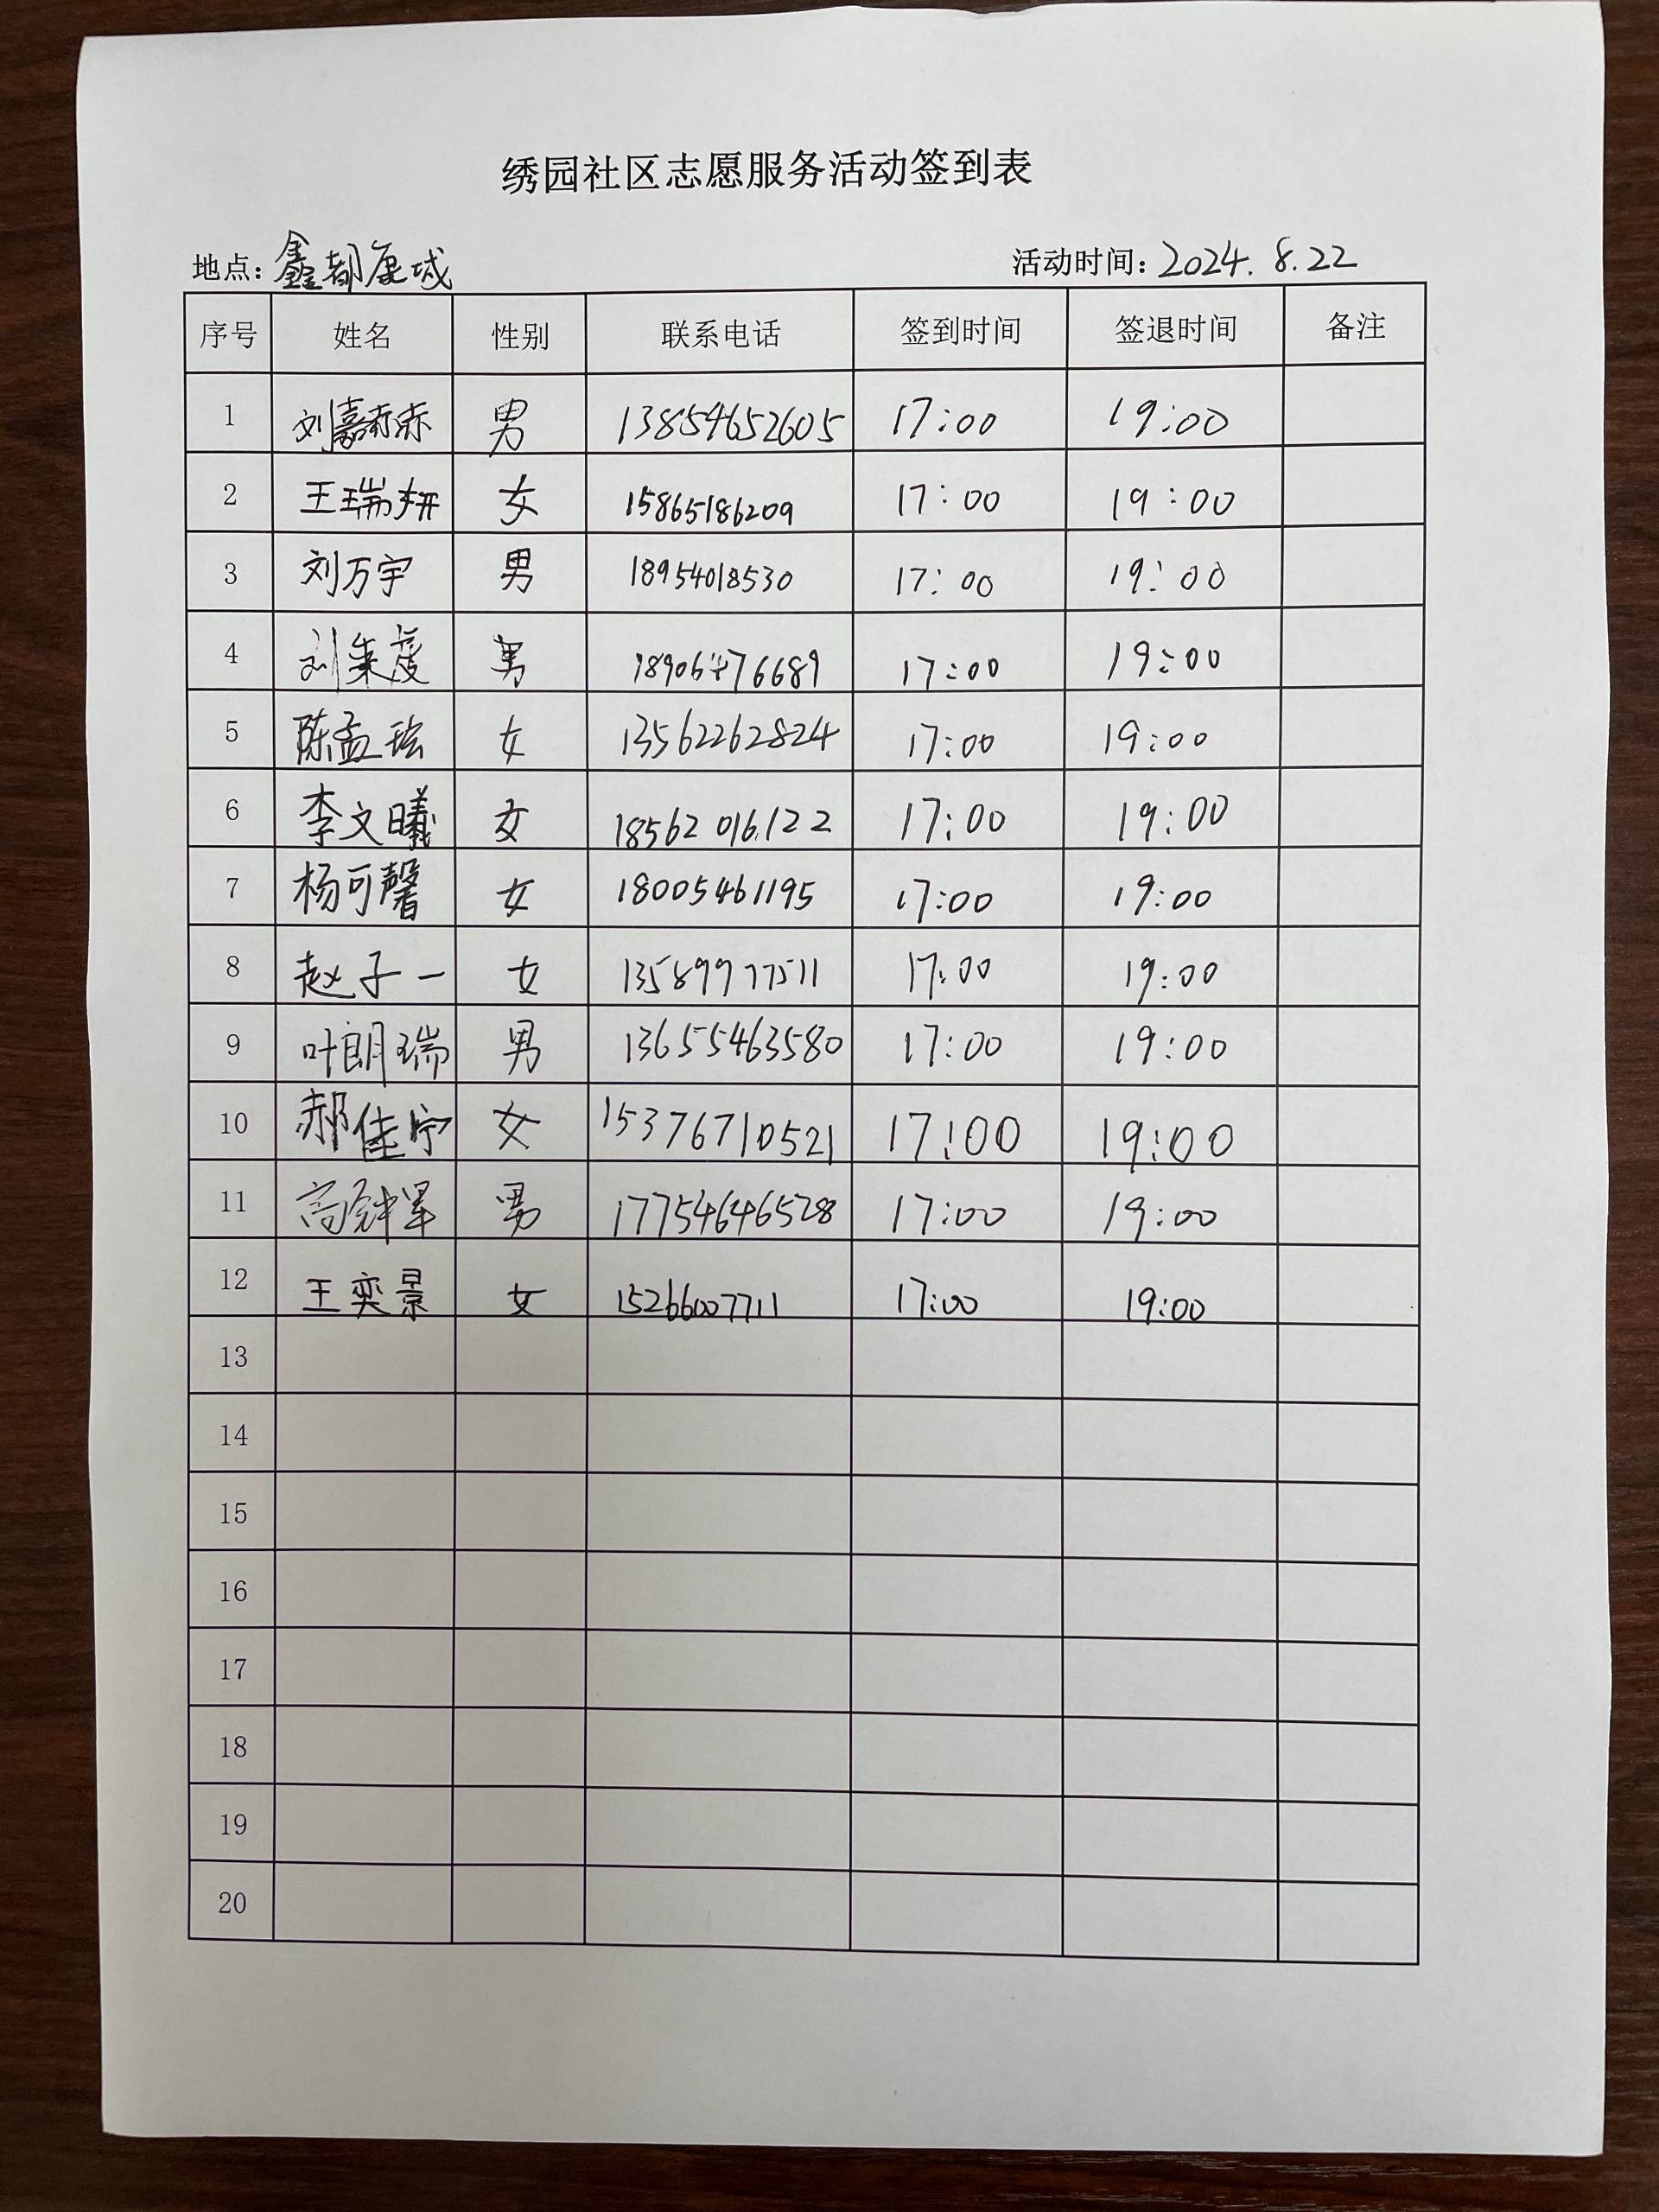 绣园社区志愿服务活动签到表
地点：鑫都康城 活动时间：2024.8.22
序号 姓名 性别 联系电话 签到时间 签退时间 备注
1 刘嘉赫 男 13854652605 17:00 19:00
2 王瑞妍 女 15865186209 17:00 19:00
3 刘万宇 男 18954018530 17:00 19:00
4 刘 男 18906476689 17:00 19:00
5 陈孟 女 13562262824 17:00 19:00
6 李文曦 女 18562016122 17:00 19:00
7 杨可馨 女 18005461195 17:00 19:00
8 赵子一 女 13589977511 17:00 19:00
9 叶朗瑞 男 13655463580 17:00 19:00
10 郝佳宁 女 15376710521 17:00 19:00
11 高钟军 男 17754646528 17:00 19:00
12 王奕景 女 15266007711 17:00 19:00
13
14
15
16
17
18
19
20